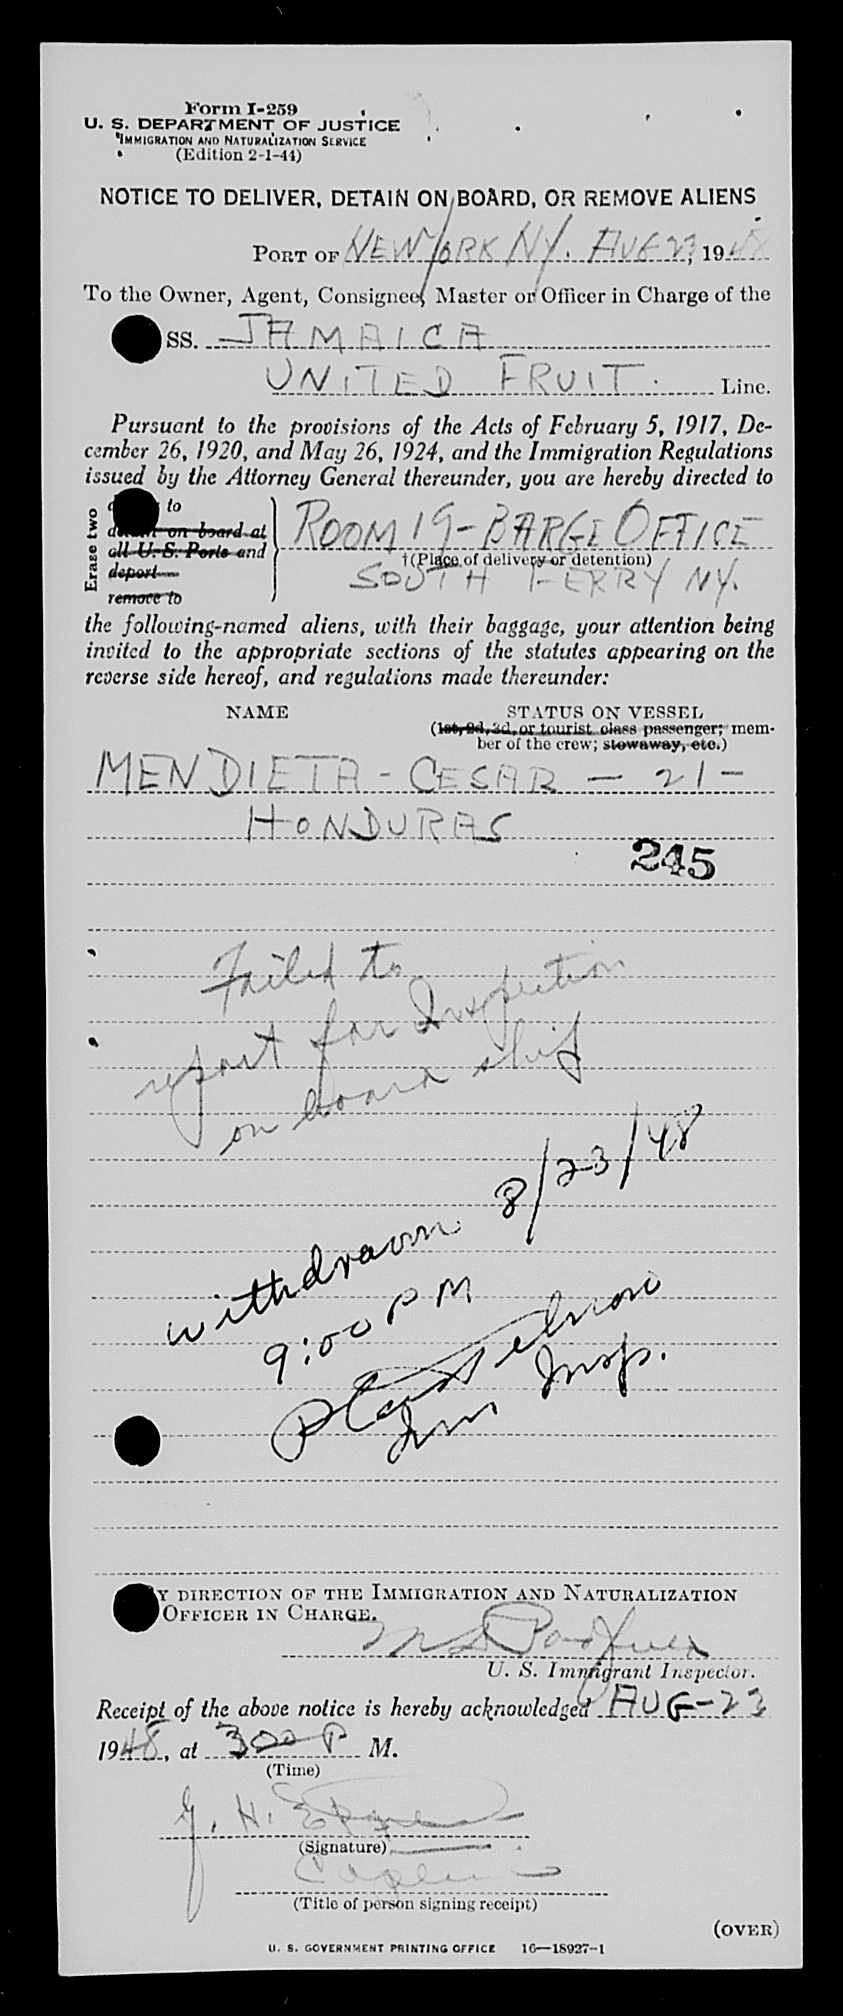 Form I-259
U. S. DEPARTMENT OF JUSTICE
IMMIGRATION AND NATURALIZATION SERVICE
(Edition 2-1-44)
NOTICE TO DELIVER, DETAIN ON BOARD, OR REMOVE ALIENS
PORT OF NEW YORK NY. AUG 23, 1948
To the Owner, Agent, Consignee, Master or Officer in Charge of the
SS. JAMAICA
UNITED FRUIT. Line.
Pursuant to the provisions of the Acts of February 5, 1917, De-
cember 26, 1920, and May 26, 1924, and the Immigration Regulations
issued by the Attorney General thereunder, you are hereby directed to
Erase two
to
on board at
all U. S. Ports and
deport
remove to
ROOM 19-BARGE OFFICE
†(Place of delivery or detention)
SOUTH FERRY NY.
the following-named aliens, with their baggage, your attention being
invited to the appropriate sections of the statutes appearing on the
reverse side hereof, and regulations made thereunder:
NAME STATUS ON VESSEL
(1st, 2d, 3d, or tourist class passenger; mem-
ber of the crew; stowaway, etc.)
MENDIETA - CESAR - 21 -
HONDURAS
245
Failed to
report for Inspection
on board ship
withdrawn 8/23/48
9:00 PM
Imm Insp.
Y DIRECTION OF THE IMMIGRATION AND NATURALIZATION
OFFICER IN CHARGE.
U. S. Immigrant Inspector.
Receipt of the above notice is hereby acknowledged AUG-23
1948, at 300 P M.
(Time)
(Signature)
(Title of person signing receipt)
(OVER)
U. S. GOVERNMENT PRINTING OFFICE 16—18927-1